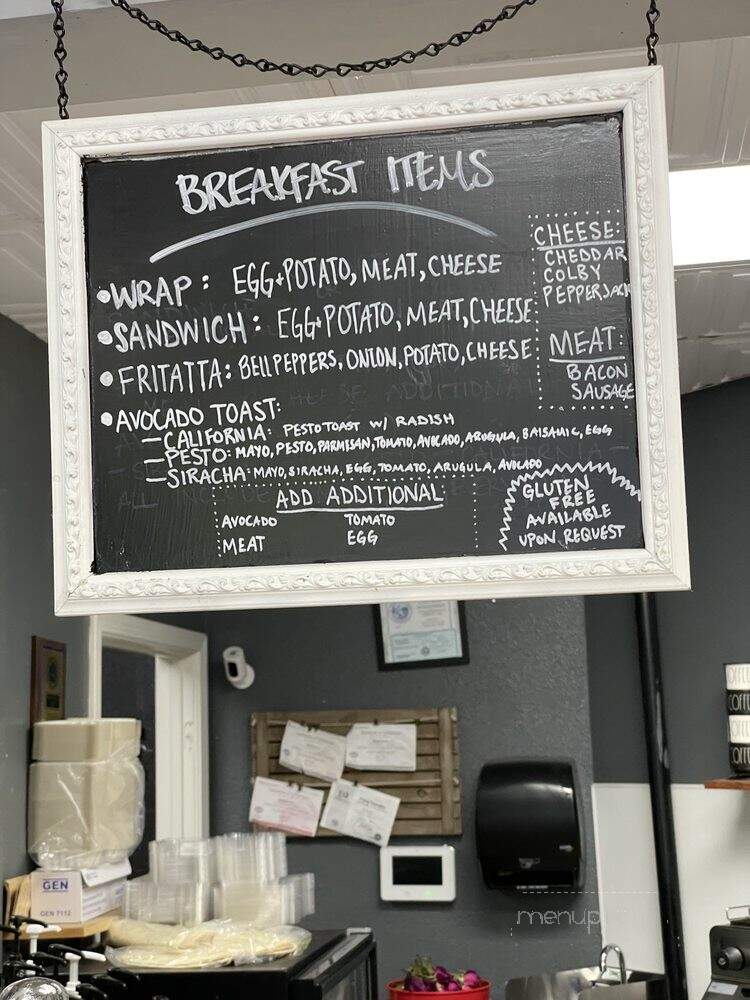 BREAKFAST ITEMS
•WRAP: EGG+POTATO, MEAT, CHEESE
•SANDWICH: EGG+POTATO, MEAT, CHEESE
•FRITATTA: BELL PEPPERS, ONION, POTATO, CHEESE
•AVOCADO TOAST:
—CALIFORNIA: PESTO TOAST W/ RADISH
—PESTO: MAYO, PESTO, PARMESAN, TOMATO, AVOCADO, ARUGULA, BALSAMIC, EGG
—SIRACHA: MAYO, SIRACHA, EGG, TOMATO, ARUGULA, AVOCADO
CHEESE:
CHEDDAR
COLBY
PEPPERJACK
MEAT:
BACON
SAUSAGE
ADD ADDITIONAL:
AVOCADO TOMATO
MEAT EGG
GLUTEN
FREE
AVAILABLE
UPON REQUEST
GEN
GEN 7112
menupix